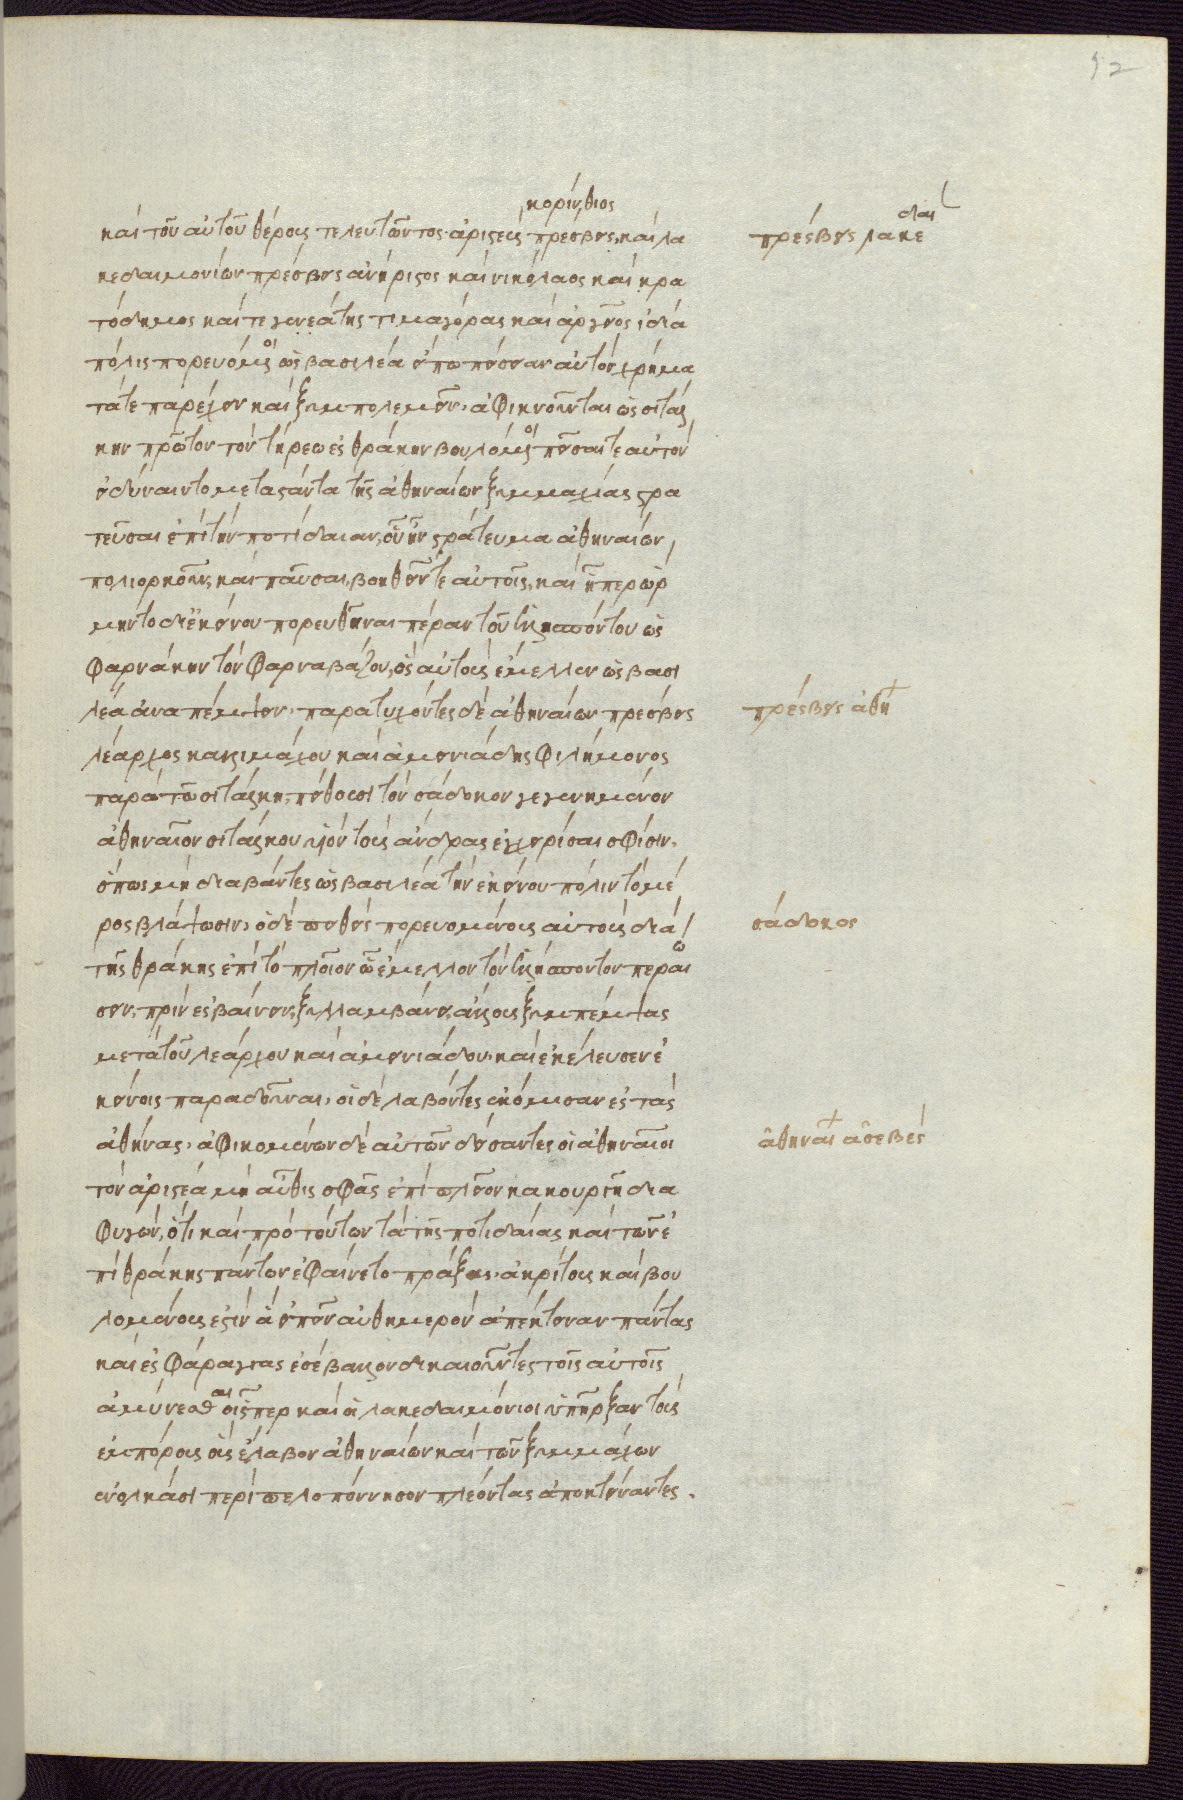 52
κορίνθιος
καὶ τοῦ αὐτοῦ θέρους τελευτῶντος ἀριστεὺς πρέσβεις, καὶ λα
κεδαιμονίων πρέσβεις ἀνήριστος καὶ νικόλαος καὶ πρα
τόδημος καὶ τεγεάτης τιμαγόρας καὶ ἀργεῖος ἰδίᾳ
πόλις πορευόμενοι ὡς βασιλέα εἴπω πείσειαν αὐτὸν χρήμα
τά τε παρέχειν καὶ ξυμπολεμεῖν. ἀφικνοῦνται ὡς σιτάλ
κην πρῶτον τὸν τήρεω ἐς θράκην βουλόμενοι πεῖσαί τε αὐτὸν
εἰ δύναιντο μεταστάντα τῆς ἀθηναίων ξυμμαχίας στρα
τεῦσαι ἐπὶ τὴν ποτίδαιαν, οὗ ἦν στράτευμα ἀθηναίων
πολιορκοῦν, καὶ παῦσαι, βοηθοῦντε αὐτοῖς, καὶ ᾗπερ ὥρ
μηντο δι' ἐκείνου πορευθῆναι πέραν τοῦ ἑλησπόντου ὡς
φαρνάκην τὸν φαρναβάζου, ὃς αὐτοὺς ἔμελλεν ὡς βασι
λέα ἀναπέμψειν. παρατυχόντες δὲ ἀθηναίων πρέσβεις
λέαρχος καλλιμάχου καὶ ἀμεινιάδης φιλήμονος
παρὰ τῷ σιτάλκῃ, πείθουσι τὸν σάδοκον γεγενημένον
ἀθηναῖον σιτάλκου υἱὸν τοὺς ἄνδρας ἐγχειρίσαι σφίσιν.
ὅπως μὴ διαβάντες ὡς βασιλέα τὴν ἐκείνου πόλιν τὸ μέ
ρος βλάψωσιν. ὁ δὲ πεισθεὶς πορευομένους αὐτοὺς διὰ
τῆς θράκης ἐπὶ τὸ πλοῖον ᾧ ἔμελλον τὸν ἑλήσποντον περαιώ
σειν, πρὶν ἐσβαίνειν, ξυλλαμβάνει, ἄλλους ξυμπέμψας
μετὰ τοῦ λεάρχου καὶ ἀμεινιάδου. καὶ ἐκέλευσεν ἐ
κείνοις παραδοῦναι. οἱ δὲ λαβόντες ἐκόμισαν ἐς τὰς
ἀθήνας. ἀφικομένων δὲ αὐτῶν δείσαντες οἱ ἀθηναῖοι
τὸν ἀριστέα μὴ αὖθις σφᾶς ἐπὶ πλεῖον κακουργῇ δια
φυγών, ὅτι καὶ πρὸ τούτων τὰ τῆς ποτιδαίας καὶ τῶν ἐ
πὶ θράκης πάντων ἐφαίνετο πράξας. ἀκρίτους καὶ βου
λομένους ἔστιν ἃ εἰπεῖν αὐθημερὸν ἀπέκτειναν πάντας
καὶ ἐς φάραγγας ἐσέβαλλον δικαιοῦντες τοῖς αὐτοῖς
ἀμύνεσθαι οἷσπερ καὶ οἱ λακεδαιμόνιοι ὑπῆρξαν τοὺς
ἐμπόρους οὓς ἔλαβον ἀθηναίων καὶ τῶν ξυμμάχων
ἐν ὁλκάσι περὶ πελοπόννησον πλέοντας ἀποκτείναντες.
πρέσβεις λακεδαι
πρέσβεις ἀθη
σάδοκος
ἀθηναῖ ἀσεβεῖς